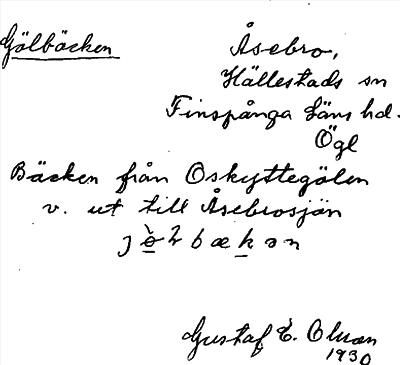 Gölbäcken
Åsebro,
Hällestads sn
Finspånga läns hd.
Ögl
Bäcken från Oskyttegölen
v. ut till Åsebrosjön
Gustaf E. Olson
1930